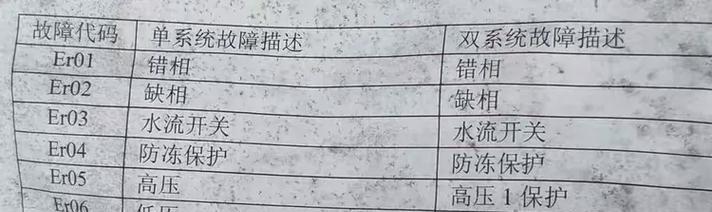 故障代码 单系统故障描述 双系统故障描述
Er01 错相 错相
Er02 缺相 缺相
Er03 水流开关 水流开关
Er04 防冻保护 防冻保护
Er05 高压 高压1保护
Er06 低压